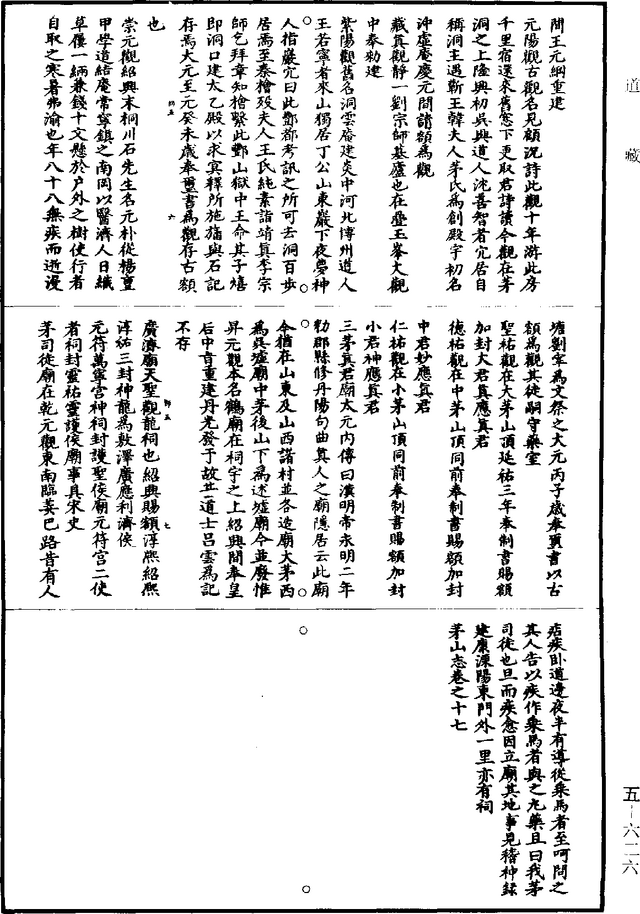 道藏
間王元綱重建
元陽觀古觀名見顧況詩此觀十年游此房
千里宿還來舊窓下更取君詩讀今觀在茅
洞之上隆興初吳興道人沈善智者穴居自
稱洞主遇蘄王韓夫人茅氏爲創殿宇初名
沖虛庵慶元間請額爲觀
藏真觀靜一劉宗師墓廬也在疊玉峯大觀
中奉勑建
紫陽觀舊名洞雲庵建炎中河北博州道人
王若寧者來山獨居丁公山東巖下夜夢神
人指巖穴曰此酆都考訊之所可去洞百步
居焉至秦檜歿夫人王氏純素詣靖真李宗
師乞拜章知檜繫此酆山獄中王命其子熺
即洞口建太乙殿以求冥釋所施旛與石記
存焉大元至元癸未歲奉璽書爲觀存古額
也
崇元觀紹興末桐川石先生名元朴從楊童
甲學道結庵常寧鎮之南岡以醫濟人日織
草屨一緉兼錢十文懸於户外之樹使行者
自取之寒暑弗渝也年八十八無疾而逝漫
塘劉宰爲文祭之大元丙子歲奉璽書以古
額爲觀其徒嗣守藥室
聖祐觀在大茅山頂延祐三年奉制書賜額
加封大君真應真君
德祐觀在中茅山頂同前奉制書賜額加封
中君妙應真君
仁祐觀在小茅山頂同前奉制書賜額加封
小君神應真君
三茅真君廟太元内傳曰漢明帝永明二年
勑郡縣修丹陽句曲真人之廟隱居云此廟
今猶在山東及山西諸村並各造廟大茅西
爲吳墟廟中茅後山下爲述墟廟今並廢惟
昇元觀本名鶴廟在祠宇之上紹興間奉皇
后中旨重建丹光發于故井道士呂雲爲記
不存
廣濟廟天聖觀龍祠也紹興賜額淳熙紹熙
淳祐三封神龍爲敷澤廣應利濟侯
元符萬寧宮神祠封護聖侯廟元符宮二使
者祠封靈祐靈護侯廟事具宋史
茅司徒廟在乾元觀東南臨莫巴路昔有人
痁疾卧道邊夜半有導從乘馬者至呵問之
其人告以疾作乘馬者與之丸藥且曰我茅
司徒也旦而疾愈因立廟其地事見稽神録
建康溧陽東門外一里亦有祠
茅山志卷之十七
五—六二六